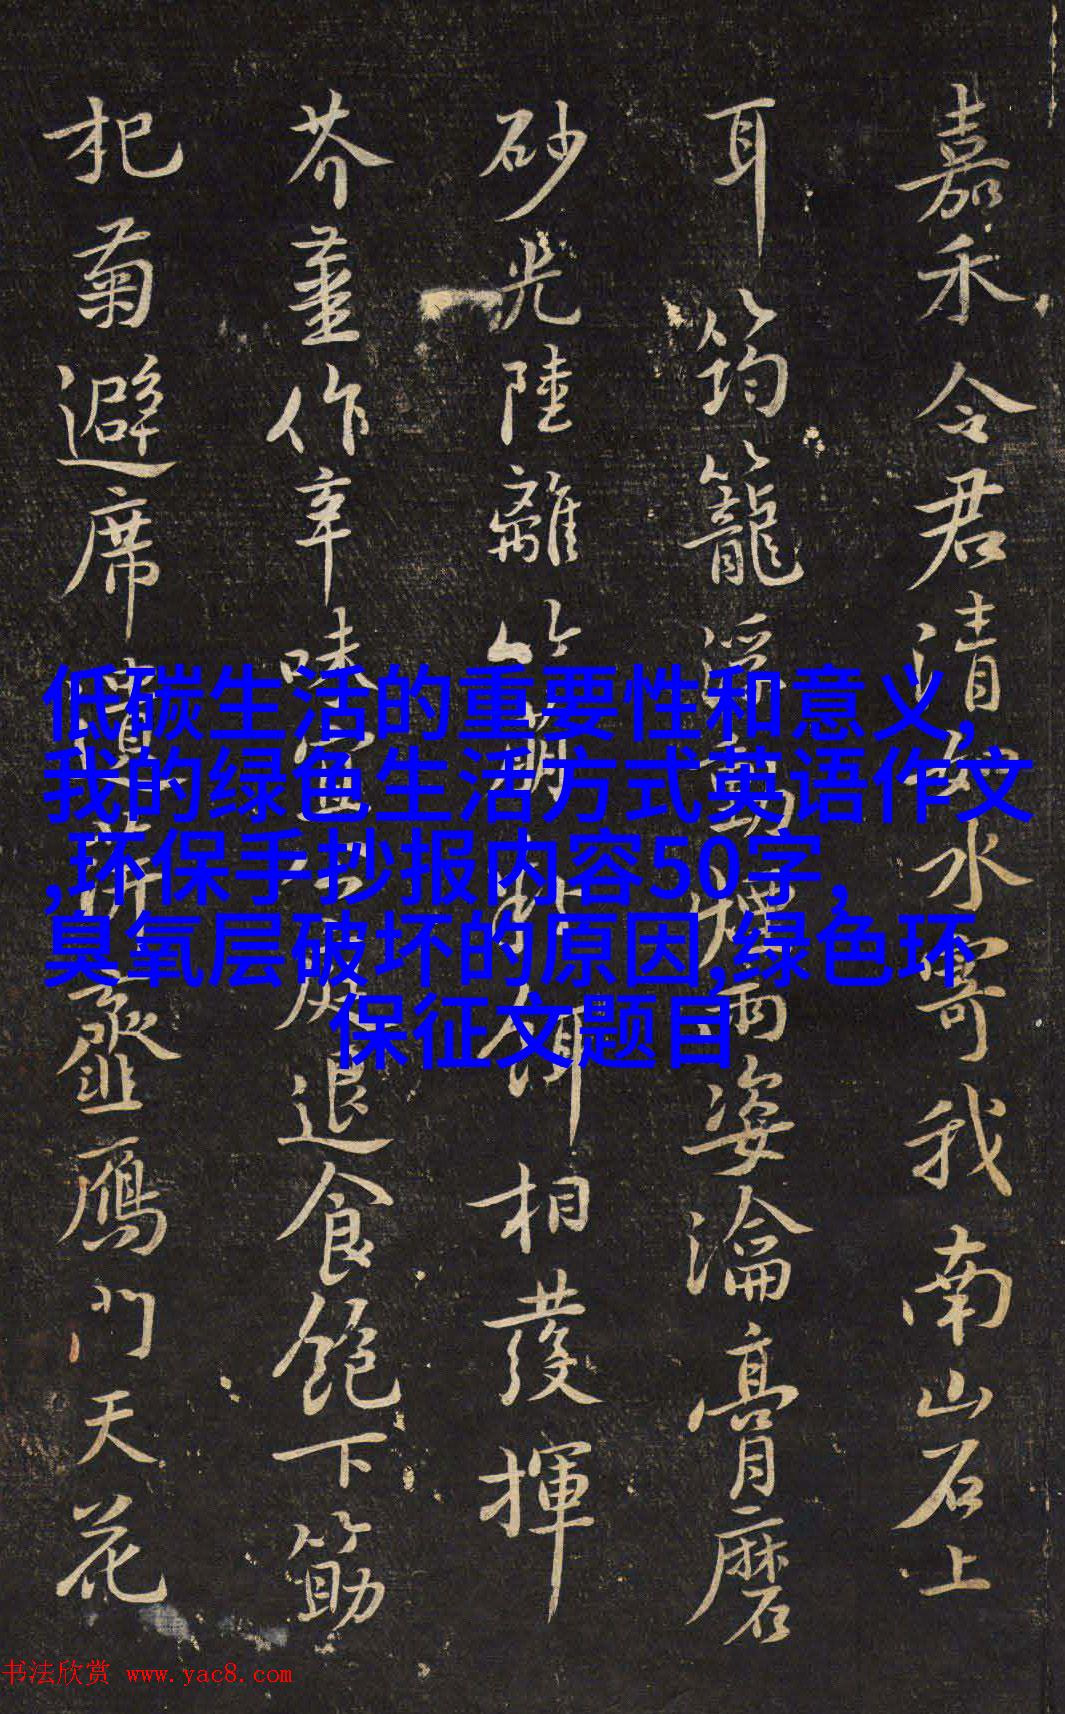 嘉禾令君清水寄我南山石上
耳筠籠浮動煙雨姿瀹膏磨
砂光陸離竹萌餌相發揮
芥薑作辛味宜退食飽下筯
杞菊避席虀鴈門天花
低碳生活的重要性和意义,
我的绿色生活方式英语作文
,环保手抄报内容50字,
臭氧层破坏的原因,绿色环
保征文题目
书法欣赏 www.yac8.com